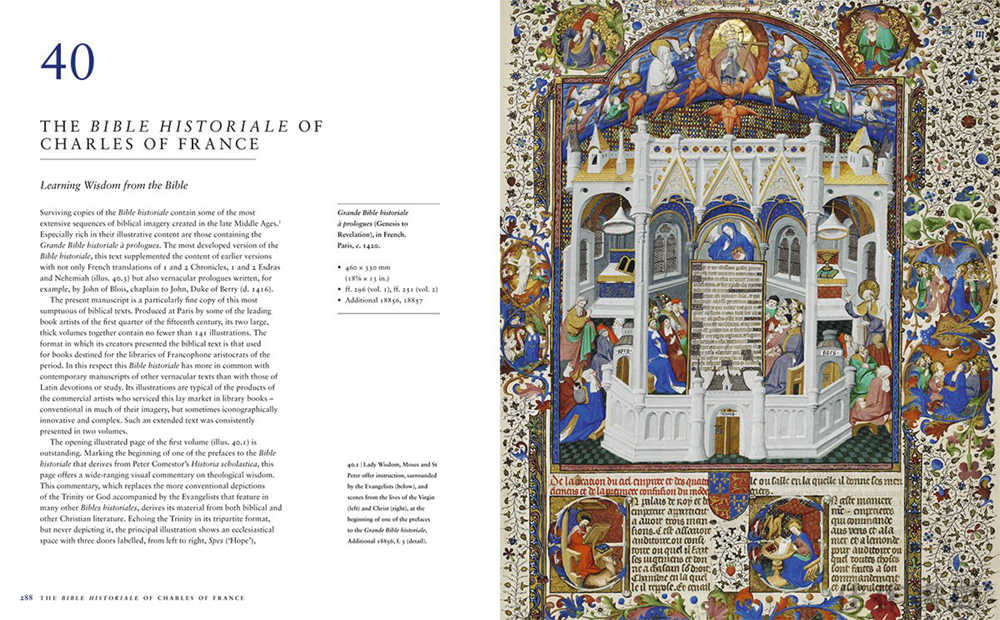 40
THE BIBLE HISTORIALE OF
CHARLES OF FRANCE
Learning Wisdom from the Bible
Surviving copies of the Bible historiale contain some of the most
extensive sequences of biblical imagery created in the late Middle Ages.¹
Especially rich in their illustrative content are those containing the
Grande Bible historiale à prologues. The most developed version of the
Bible historiale, this text supplemented the content of earlier versions
with not only French translations of 1 and 2 Chronicles, 1 and 2 Esdras
and Nehemiah (illus. 40.3) but also vernacular prologues written, for
example, by John of Blois, chaplain to John, Duke of Berry (d. 1416).
The present manuscript is a particularly fine copy of this most
sumptuous of biblical texts. Produced at Paris by some of the leading
book artists of the first quarter of the fifteenth century, its two large,
thick volumes together contain no fewer than 141 illustrations. The
format in which its creators presented the biblical text is that used
for books destined for the libraries of Francophone aristocrats of the
period. In this respect this Bible historiale has more in common with
contemporary manuscripts of other vernacular texts than with those of
Latin devotions or study. Its illustrations are typical of the products of
the commercial artists who serviced this lay market in library books –
conventional in much of their imagery, but sometimes iconographically
innovative and complex. Such an extended text was consistently
presented in two volumes.
The opening illustrated page of the first volume (illus. 40.1) is
outstanding. Marking the beginning of one of the prefaces to the Bible
historiale that derives from Peter Comestor's Historia scholastica, this
page offers a wide-ranging visual commentary on theological wisdom.
This commentary, which replaces the more conventional depictions
of the Trinity or God accompanied by the Evangelists that feature in
many other Bibles historiales, derives its material from both biblical and
other Christian literature. Echoing the Trinity in its tripartite format,
but never depicting it, the principal illustration shows an ecclesiastical
space with three doors labelled, from left to right, Spes ('Hope'),
Grande Bible historiale
à prologues (Genesis to
Revelation), in French.
Paris, c. 1420.
• 460 × 330 mm
(18⅛ × 13 in.)
• ff. 296 (vol. 1), ff. 251 (vol. 2)
• Additional 18856, 18857
40.1 | Lady Wisdom, Moses and St
Peter offer instruction, surrounded
by the Evangelists (below), and
scenes from the lives of the Virgin
(left) and Christ (right), at the
beginning of one of the prefaces
to the Grande Bible historiale,
Additional 18856, f. 3 (detail).
288 THE BIBLE HISTORIALE OF CHARLES OF FRANCE
De la creation du ciel empire et des quatre
elemens et de la premiere confusion du mode
le ou salle en la quelle il donne ses mez
N palais de roy et d
empereur appartient
a avoir trois man
sions. C est assavoir
auditoire ou consis
toire ou quel il fait
ses iugemens et don
ne a chascun so droit
Chambre en la quel
le il repose. Et cenail
N ceste maniere
qui commande
aus vens et a la
mer et a lemonde
pour auditoire ou
quel toutes choses
sont faites a son
commandement